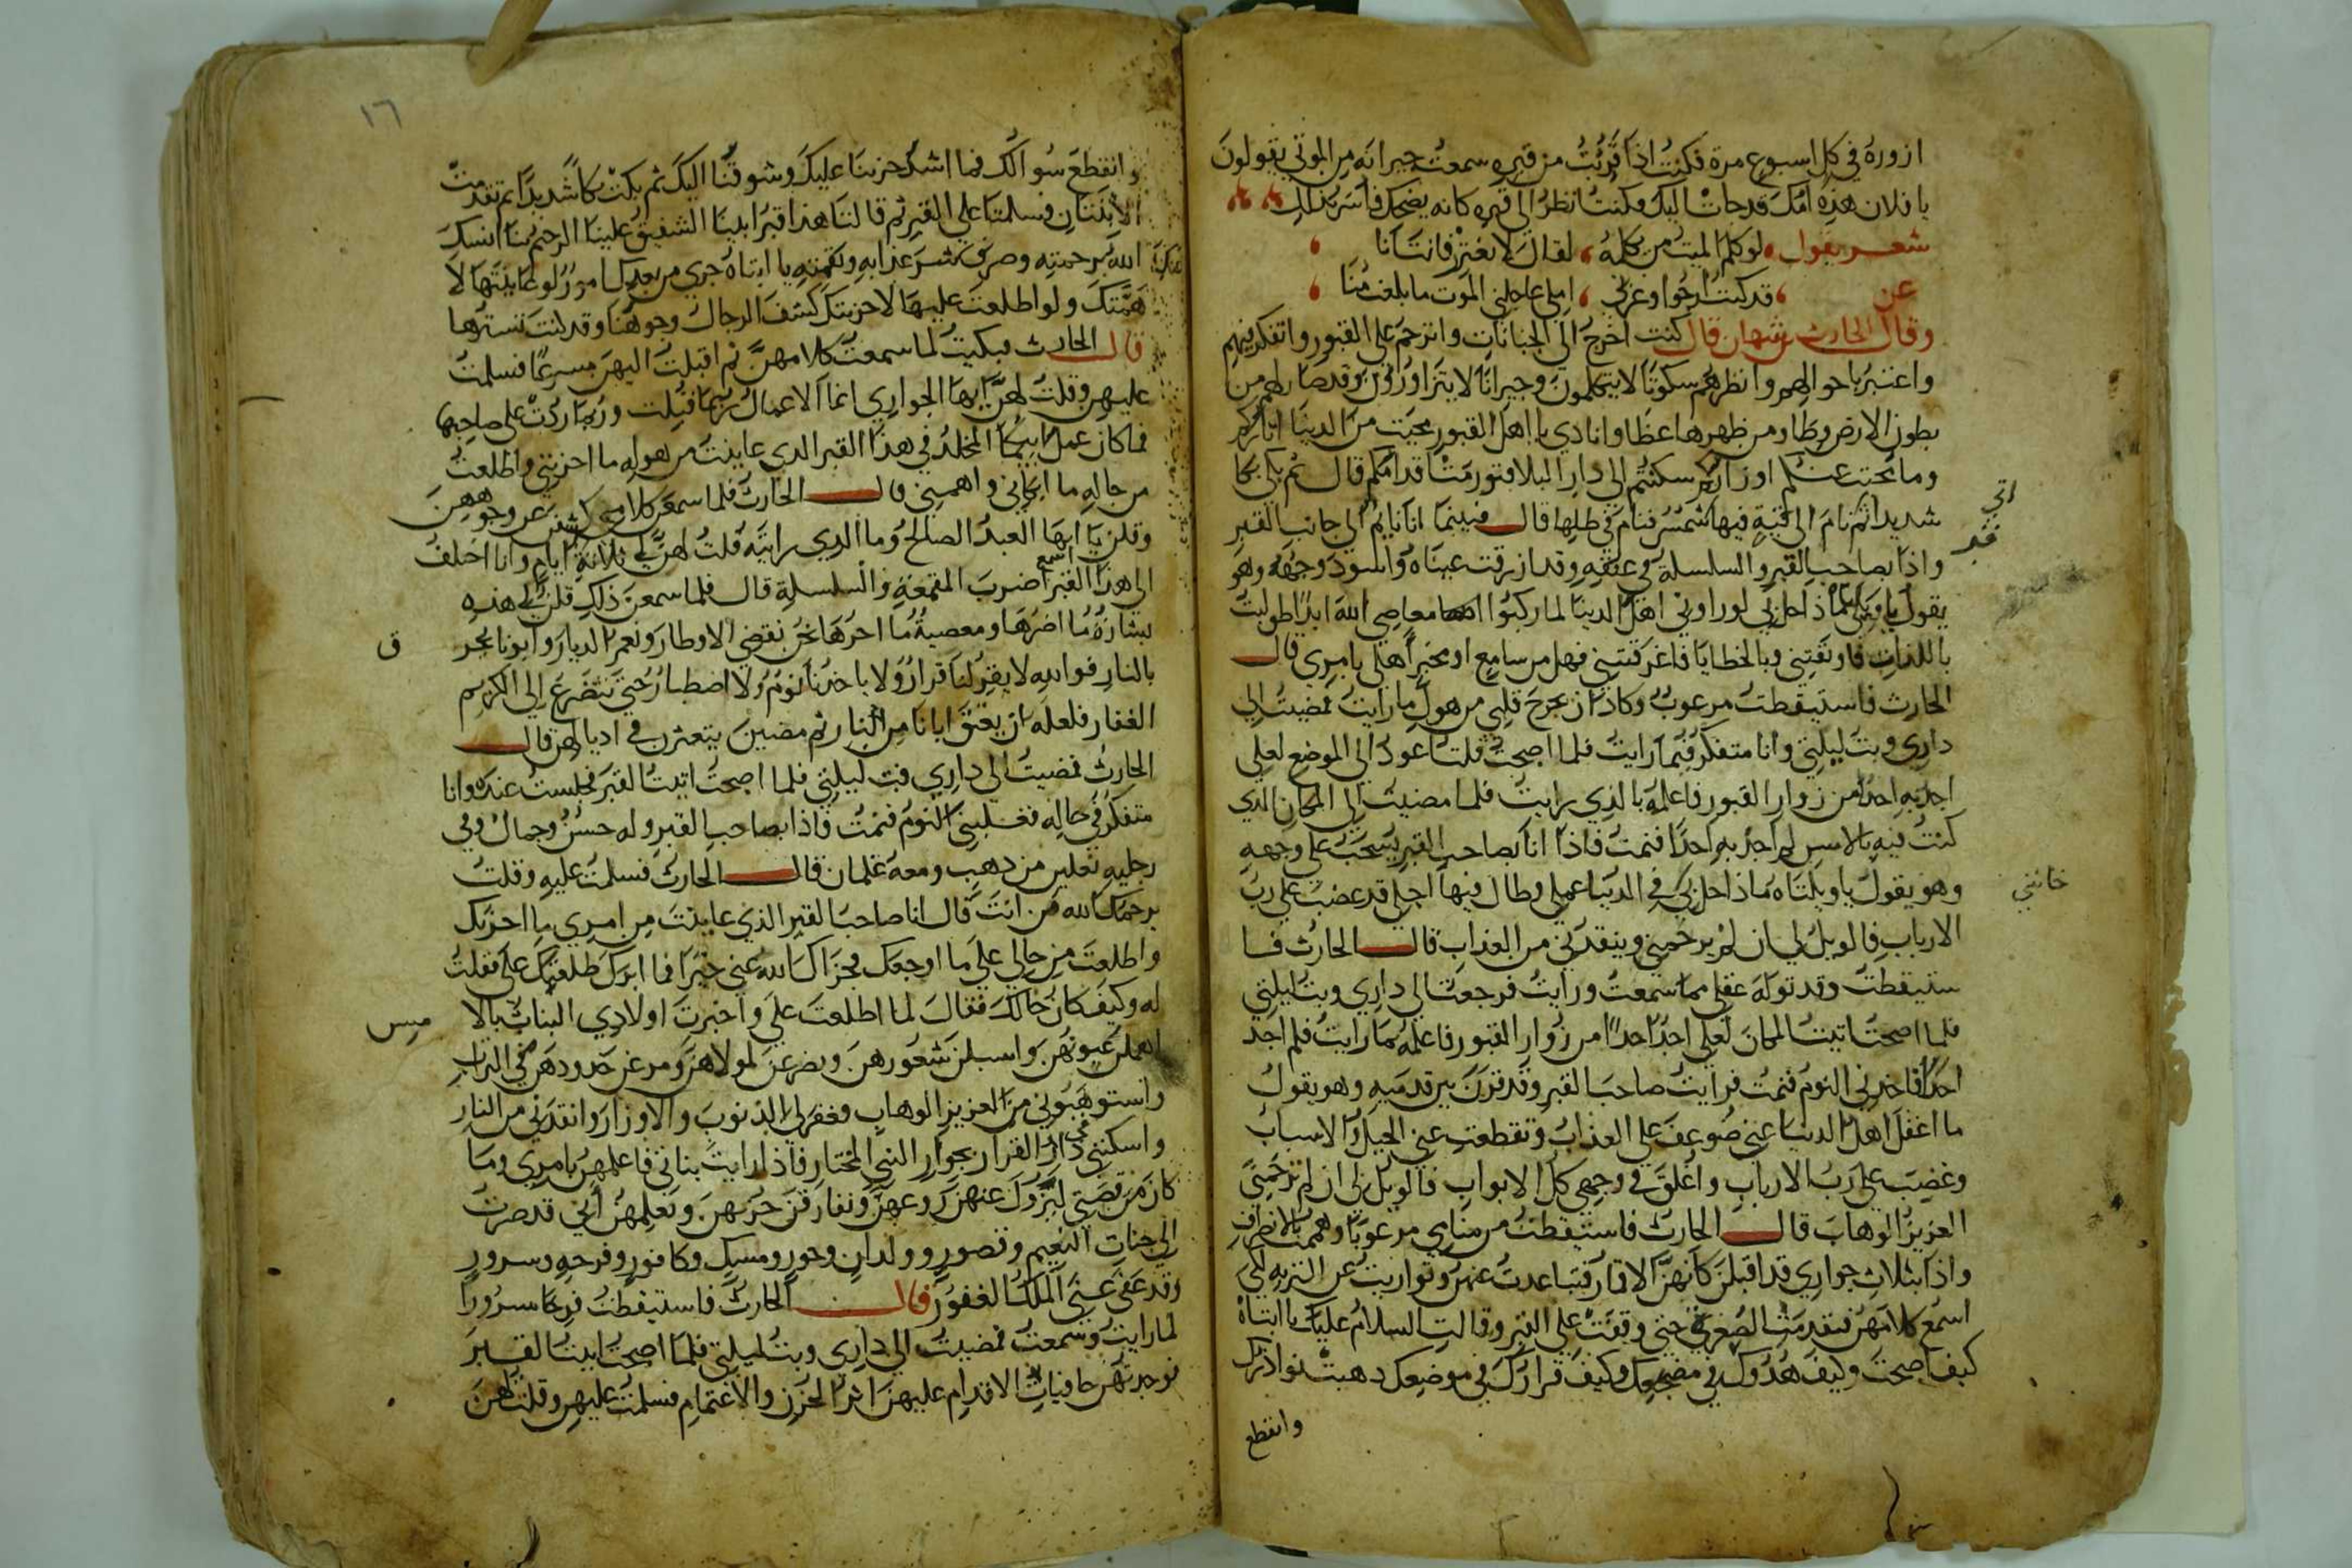 ازوره في كل اسبوع مرة فكنت اذا قربت من قبره سمعت جيرانه من الموتي يقولون
يا فلان هذه امك قد جات اليك وكنت انظر الي قبره كانه يضحك فاسر بذلك
شعر يقول لو كلم الميت من كلمه لقال لا تغتر فانت انا
قد كنت ارجوا وغرني املي عاجلني الموت ما بلغت منا
عن
وقال الحارث بن نبهان قال كنت اخرج الي الجبانات واترحم علي القبور واتفكر فيهم
واعتبر باحوالهم وانظرهم سكوتا لا يتكلمون وجيرانا لا يتزاورون وقد صار لهم من
بطون الارض وطا ومن ظهرها غطا وانادي يا اهل القبور محيت من الدنيا اثاركم
وما محيت عنكم اوزاركم سكنتم الي دار البلا فتورمت اقدامكم قال ثم بكي بكا
شديدا ثم نام الي قبة فيها شمس فنام في ظلها قال فبينما انا نايم الي جانب القبر
اتي
قبر
واذا بصاحب القبر والسلسلة في عنقه وقد ازرقت عيناه واسود وجهه وهو
يقول يا ويلي ماذا حل بي لو راوني اهل الدنيا لما ركبوا معاصي الله ابدا طولبت
باللذات فاوثقتني وبالخطايا فاغرقتني فهل من سامع او مخبرا اهلي بامري قال
الحارث فاستيقظت مرعوب وكاد ان يخرج قلبي من هول ما رايت فمضيت الي
داري وبت ليلتي وانا متفكر فيما رايت فلما اصبحت قلت اعود الي الموضع لعلي
اجد به احدا من زوار القبور فاعلمه بالذي رايت فلما مضيت الي المكان الذي
كنت فيه بالامس لم اجد به احدا فنمت فاذا انا بصاحب القبر يسحب علي وجهه
وهو يقول يا ويلتاه ماذا حل بي في الدنيا عملي وطال فيها اجلي قد غضب علي رب
خانني
الارباب فالويل لي ان لم يرحمني وينقدني من العذاب قال الحارث فا
ستيقظت وقد توله عقلي مما سمعت ورايت فرجعت الي داري وبت ليلتي
فلما اصبحت اتيت المكان لعلي اجد احدا من زوار القبور فاعلمه بما رايت فلم اجد
احدا فاخدني النوم فنمت فرايت صاحب القبر وقد قرن بين قدميه وهو يقول
ما اغفل اهل الدنيا عني ضوعف علي العذاب وتقطعت عني الحيل والاسباب
وغضب علي رب الارباب واغلق في وجهي كل الابواب فالويل لي ان لم ترحمني
العزيز الوهاب قال الحارث فاستيقظت من منامي مرعوبا وهممت بالانصراف
واذا بثلاث جواري قد اقبلن كانهن الاقمار فتباعدت عنهن وتواريت عن التربه لكي
اسمع كلامهن فتقدمت الصغري حتي وقفت علي القبر وقالت السلام عليك يا ابتاه
كيف اصبحت وكيف هدوك في مضجعك وكيف قرارك في موضعك دهبت نوادرك
وانقطع
١٦
وانقطع سوالك فما اشد حزننا عليك وشوقنا اليك ثم بكت بكا شديدا ثم تقدمت
الاثنتان فسلمتا علي القبر ثم قالتا هذا قبر ابينا الشفيق علينا الرحيم بنا انسك
الله برحمته وصرف شر عذابه ونقمته يا ابتاه جري من بعدك امور لو عاينتها لا
همتك ولو اطلعت عليها لاحزنتك كشف الرجال وجوهنا وقد كنت تسترها
قال الحارث فبكيت لما سمعت كلامهن ثم اقبلت اليهن مسرعا فسلمت
عليهن وقلت لهن ايها الجواري انما الاعمال ربما قبلت وربما ردت علي صاحبها
فما كان عمل ابيكما المخلد في هذا القبر الدي عاينت من هوله ما احزنني واطلعت
من حاله ما ابكاني واهمني قال الحارث فلما سمعن كلامي كشفن عن وجوههن
وقلن يا ايها العبد الصالح وما الدي رايته قلت لهن لي ثلاثة ايام وانا اختلف
الي هدا القبر اسمع ضرب المقمعة والسلسلة قال فلما سمعن ذلك قلن لي هذه
بشارة ما اضرها ومعصية ما احرها نحن نقضي الاوطار ونعمر الديار وابونا يحر
ق
بالنار فوالله لا يقر لنا قرار ولا ياخدنا نوم ولا اصطبار حتي نتضرع الي الكريم
الغفار فلعله ان يعتق ابانا من النار ثم مضين يتعثرن في اديالهن قال
الحارث فمضيت الي داري فبت ليلتي فلما اصبحت اتيت القبر فجلست عنده وانا
متفكر في حاله فغلبني النوم فنمت فاذا بصاحب القبر وله حسن وجمال وفي
رجليه نعلين من دهب ومعه غلمان قال الحارث فسلمت عليه وقلت
يرحمك الله من انت قال انا صاحب القبر الذي عاينت من امري ما احزنك
واطلعت من حالي علي ما اوجعك فجزاك الله عني خيرا فما ابرك طلعتك علي فقلت
له وكيف كان حالك فقال لما اطلعت علي واخبرت اولادي البنات بالا
مس
اهملن عيونهن واسبلن شعورهن وتضرعن لمولاهن ومرغن خدودهن في التراب
واستوهبوني من العزيز الوهاب فغفر لي الذنوب والاوزار وانقدني من النار
واسكنني دار القرار بجوار النبي المختار فاذا رايت بناتي فاعلمهن بامري وما
كان من قصتي ليزول عنهن روعهن وتفارقن حزنهن وتعلمهن اني قد صرت
الي جنات النعيم وقصور وولدان وحور ومسك وكافور وفرحه وسرور
وقد عفي عني الملك الغفور قال الحارث فاستيقظت فرحا مسرورا
لما رايت وسمعت فمضيت الي داري وبت ليلتي فلما اصبحت اتيت القبر
فوجدتهن حافيات الاقدام عليهن اثر الحزن والاغتمام فسلمت عليهن وقلت لهن